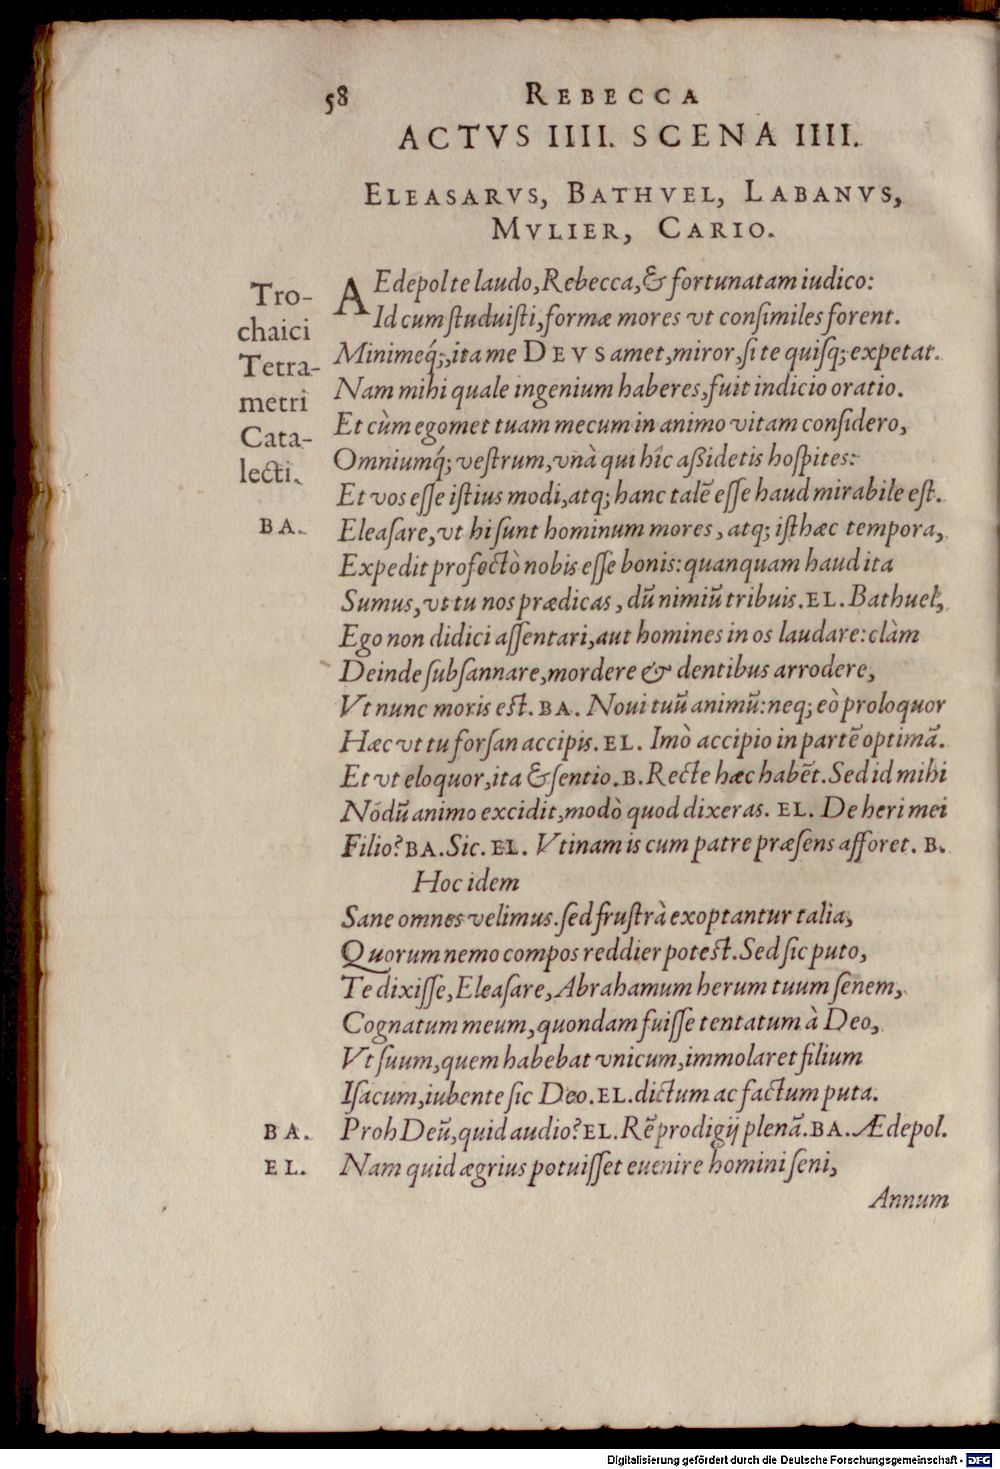 58 REBECCA
ACTVS IIII. SCENA IIII.
ELEASARVS, BATHVEL, LABANVS,
MVLIER, CARIO.
Tro-
chaici
Tetra-
metri
Cata-
lecti.
AEdepol te laudo, Rebecca, & fortunatam iudico:
Id cum ſtuduiſti, formæ mores vt conſimiles forent.
Minimeq́;, ita me DEVS amet, miror, ſi te quiſq; expetat.
Nam mihi quale ingenium haberes, fuit indicio oratio.
Et cùm egomet tuam mecum in animo vitam conſidero,
Omniumq́; veſtrum, vnà qui hîc aßidetis hoſpites:
Et vos eſſe iſtius modi, atq; hanc talē eſſe haud mirabile eſt.
BA. Eleaſare, vt hi ſunt hominum mores, atq; iſthæc tempora,
Expedit profectò nobis eſſe bonis: quanquam haud ita
Sumus, vt tu nos prædicas, dū nimiū tribuis. EL. Bathuel,
Ego non didici aſſentari, aut homines in os laudare: clàm
Deinde ſubſannare, mordere & dentibus arrodere,
Vt nunc moris eſt. BA. Noui tuū animū: neq; eò proloquor
Hæc vt tu forſan accipis. EL. Imò accipio in partē optimā.
Et vt eloquor, ita & ſentio. B. Recte hæc habēt. Sed id mihi
Nódū animo excidit, modò quod dixeras. EL. De heri mei
Filio? BA. Sic. EL. Vtinam is cum patre præſens afforet. B.
Hoc idem
Sane omnes velimus. ſed fruſtrà exoptantur talia,
Quorum nemo compos reddier poteſt. Sed ſic puto,
Te dixiſſe, Eleaſare, Abrahamum herum tuum ſenem,
Cognatum meum, quondam fuiſſe tentatum à Deo,
Vt ſuum, quem habebat vnicum, immolaret filium
Iſacum, iubente ſic Deo. EL. dictum ac factum puta.
BA. Proh Deū, quid audio? EL. Rē prodigij plenā. BA. Ædepol.
EL. Nam quid ægrius potuiſſet euenire homini ſeni,
Annum
Digitalisierung gefördert durch die Deutsche Forschungsgemeinschaft - DFG